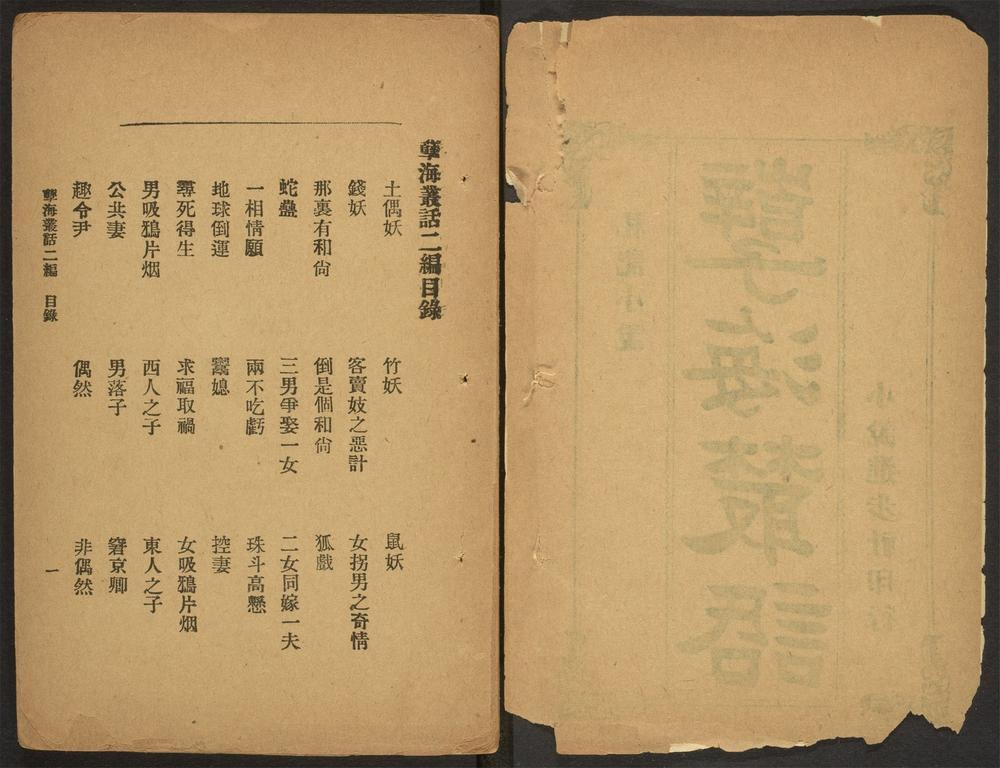 孽海叢話二編目錄
土偶妖　竹妖　鼠妖
錢妖　客賣妓之惡計　女拐男之奇情
那裏有和尙　倒是個和尙　狐戲
蛇蠱　三男爭娶一女　二女同嫁一夫
一相情願　兩不吃虧　珠斗高懸
地球倒運　鬻媳　控妻
尋死得生　求福取禍　女吸鴉片烟
男吸鴉片烟　西人之子　東人之子
公共妻　男落子　窘京卿
趣令尹　偶然　非偶然
孽海叢話二編　目錄
一
小說進步社印行
孽海叢話